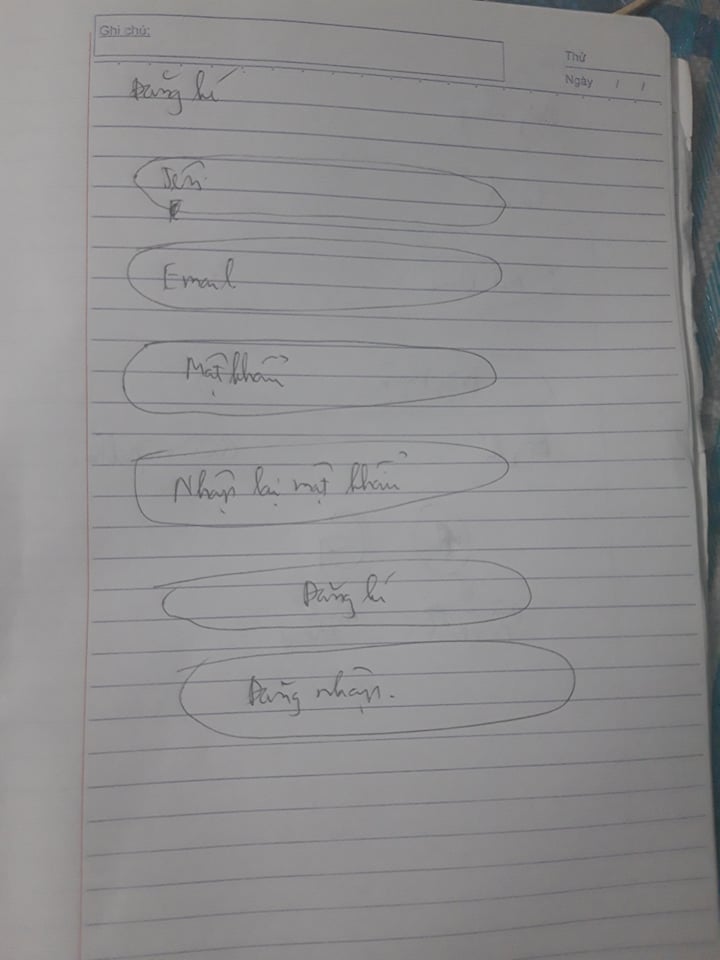 Ghi chú:
Thứ
Ngày / /
Đăng kí
Tên
Email
Mật khẩu
Nhập lại mật khẩu
Đăng kí
Đăng nhập.